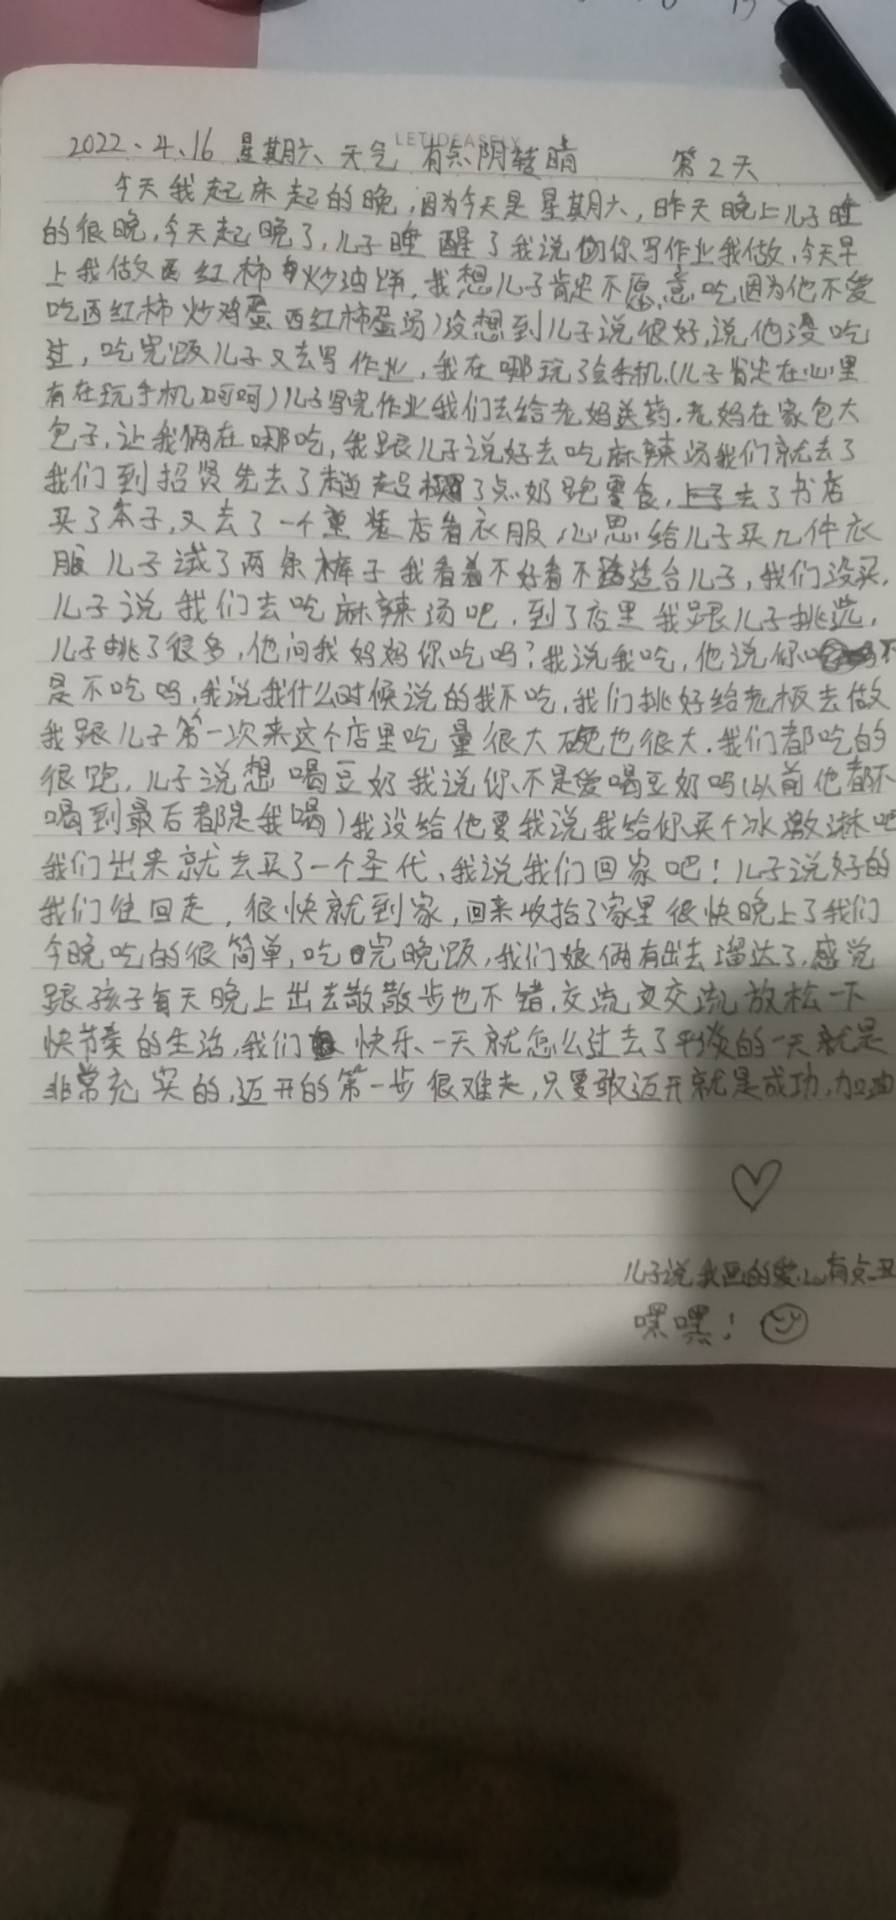 LETIDEASELY
2022、4、16 星期六、天气 有点阴转晴 第2天
今天我起床起的晚,因为今天是星期六,昨天晚上儿子睡
的很晚,今天起晚了,儿子睡醒了我说你写作业我做,今天早
上我做西红柿炒油饼,我想儿子肯定不愿意吃因为他不爱
吃西红柿炒鸡蛋西红柿蛋汤)没想到儿子说很好,说他没吃
过,吃完饭儿子又去写作业,我在哪玩了会手机.(儿子肯定在心里
有在玩手机呵呵)儿子写完作业我们去给老妈送药.老妈在家包大
包子,让我俩在哪吃,我跟儿子说好去吃麻辣汤我们就去了
我们到招贤先去了趟超了点奶跑零食,去了书店
买了本子,又去了一个童装店看衣服,心思给儿子买几件衣
服儿子试了两条裤子我看着不好看不适合儿子,我们没买,
儿子说我们去吃麻辣汤吧,到了店里我跟儿子挑选,
儿子挑了很多,他问我妈妈你吃吗?我说我吃,他说你不
是不吃吗,我说我什么时候说的我不吃,我们挑好给老板去做
我跟儿子第一次来这个店里吃量很大碗也很大.我们都吃的
很跑,儿子说想喝豆奶我说你不是爱喝豆奶吗(以前他都不
喝到最后都是我喝)我没给他要我说我给你买个冰激淋吧
我们出来就去买了一个圣代、我说我们回家吧!儿子说好的
我们往回走,很快就到家,回来收拾了家里很快晚上了我们
今晚吃的很简单,吃完晚饭,我们娘俩有出去溜达了,感觉
跟孩子每天晚上出去散散步也不错,交流交流放松一下
快节奏的生活,我们快乐、一天就怎么过去了平淡的一天就是
非常充实的,迈开的第一步很难走,只要敢迈开就是成功,加油
儿子说我画的爱心有点丑
嘿嘿!